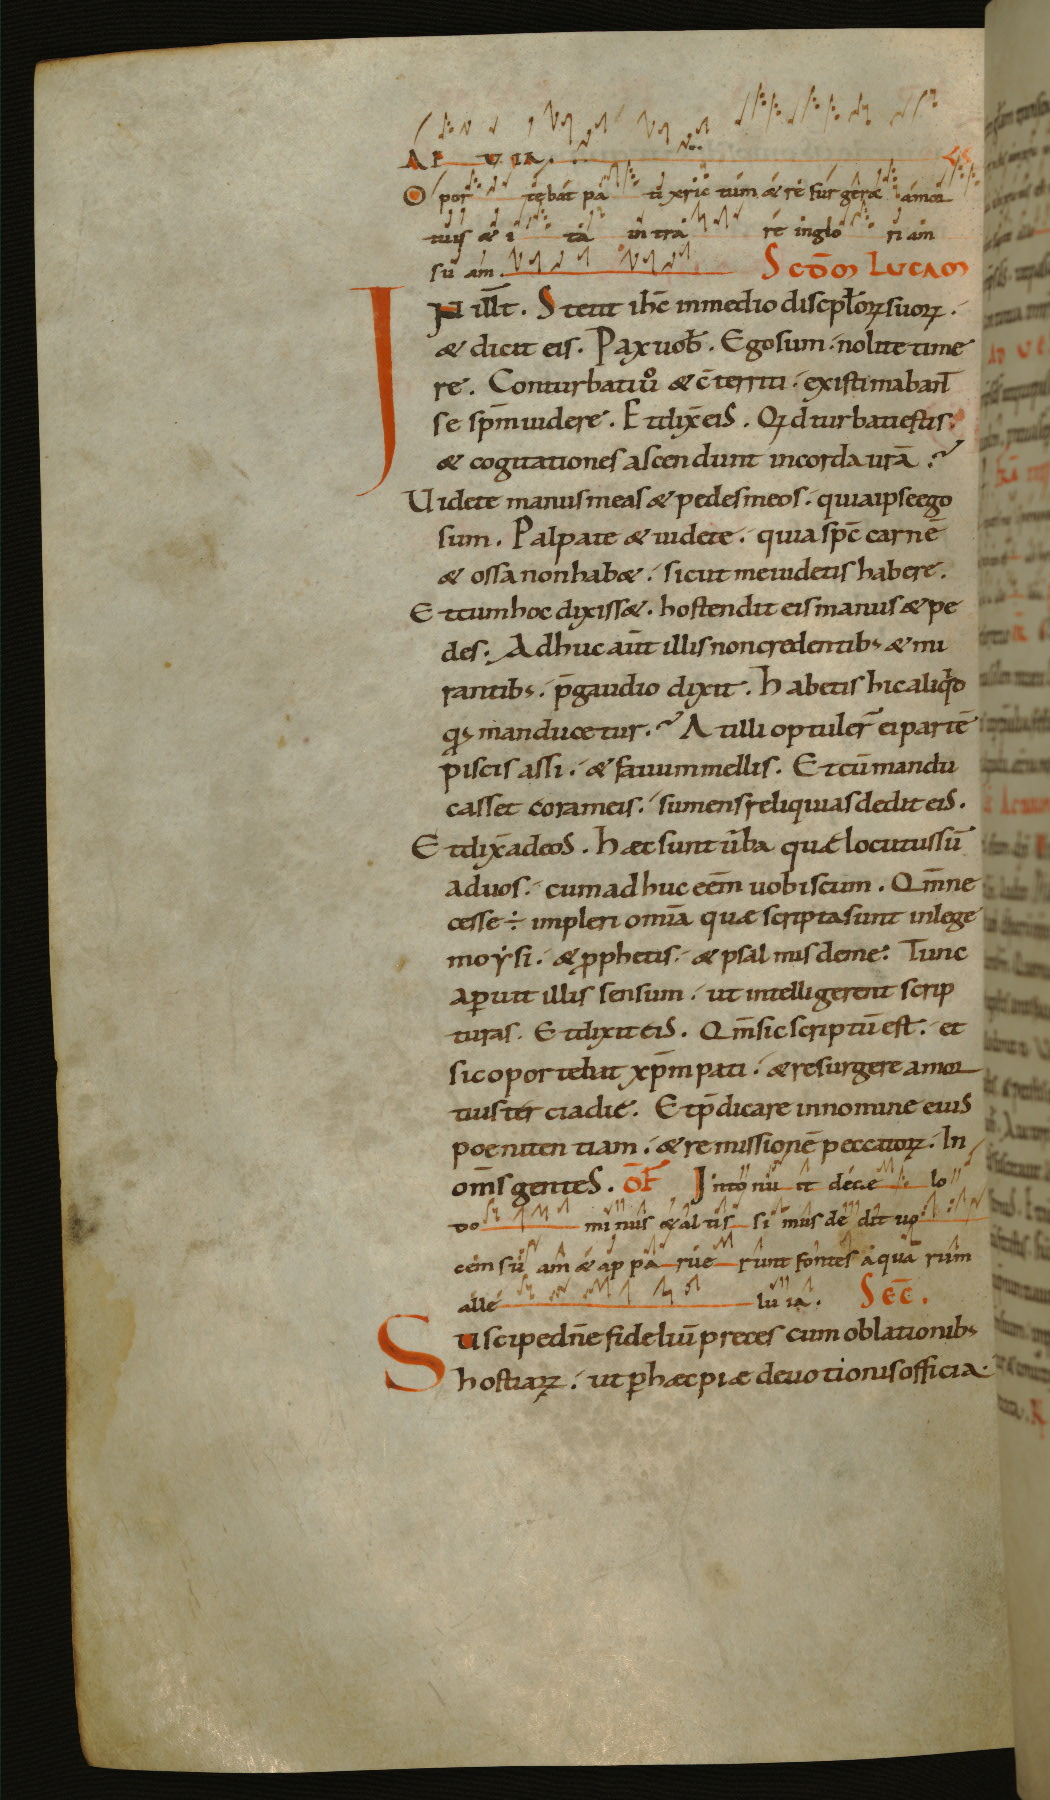 AE V IA.
Opor tebat pa ti xpic tum ære sur geræ amor
tuis æ i ta in tra re inglo ri am
su am. Scdōm Lucam
IN illt̄. Stetit ihc̄ inmedio discpłoꝝ suoꝝ.
æ dicit eis. Pax uob̄. Ego sum. nolite time
re. Conturbati ů æ c̄territi. existimabant̄
se spm̄ uidere. Et dix̄ eis. Qđ turbati estis.
æ cogitationes ascendunt incorda urā.
Uidete manus meas æ pedes meos. quia ipse ego
sum. Palpate æ uidete. quia spc̄ carnē
æ ossa non habæ. sicut me uidetis habere.
Et cum hoc dixissæ. hostendit eis manus æ pe
des. Adhuc aūt illis non credentibꝫ æ mi
rantibꝫ. p̄ gaudio dixit. Habetis hic aliqđ
qꝫ manducetur. At illi optuler̄ ei partē
piscis assi. æ fauum mellis. Et cū mandu
casset coram eis. sumens reliquias dedit eis.
Et dix̄ ad eos. Hæc sunt ūba quæ locutus sū
ad uos. cum adhuc eēm uobiscum. Qm̄ ne
cesse ÷ impleri omīa quæ scripta sunt inlege
moẏsi. æ ꝓphetis. æ psalmis deme. Tunc
aꝑuit illis sensum. ut intelligerent scrip
turas. Et dixit eis. Qm̄ sic scriptū est. et
sic oportebat xpm̄ pati. æ resurgere amor
tuis tercia die. Et p̄dicare in nomine eius
poenitentiam. æ remissionē peccatoꝝ. In
oms̄ gentes. OF̄ Into nu it de ce lo
do mi nus æ al tis si mus de dit uo
cem su am æ ap pa rue runt fontes aqua rum
alle lu ia. Sec̄.
Suscipe dn̄e fideliū preces cum oblationibꝫ
hostiaꝝ. ut ꝑ hæc piæ deuotionis officia.